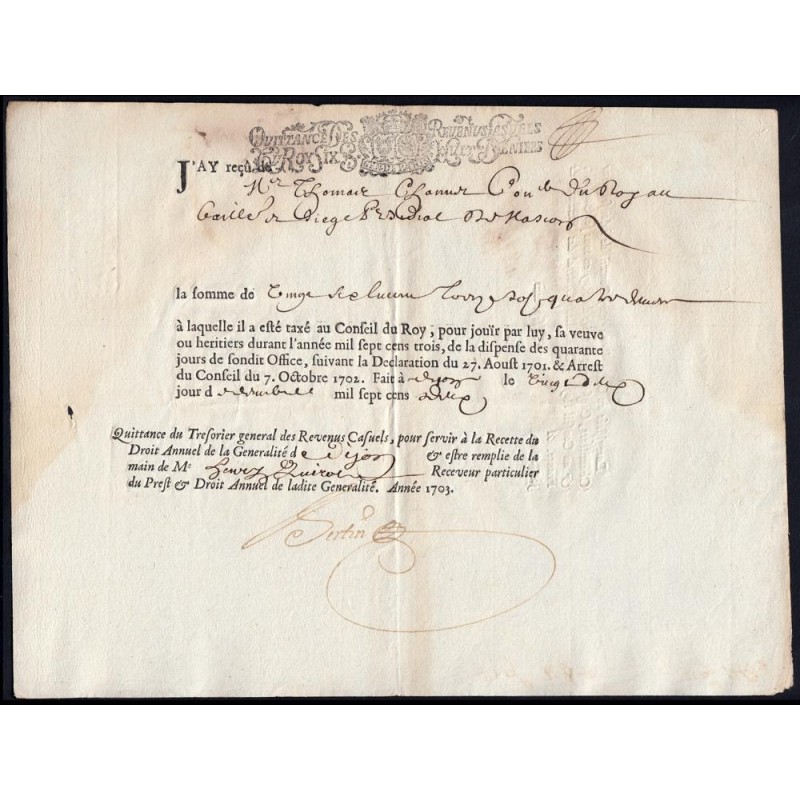 QUITTANCE DES REVENUS CASUELS
DU ROY SIX S HUIT DENIERS
J'AY reçû de
Mre Thomas Chanut Con.er du Roy au
Bailla et Siege Presidial de Mascon
la somme de vingt six livres treize sols quatre deniers
à laquelle il a esté taxé au Conseil du Roy, pour jouïr par luy, sa veuve
ou heritiers durant l'année mil sept cens trois, de la dispense des quarante
jours de sondit Office, suivant la Declaration du 27. Aoust 1701. & Arrest
du Conseil du 7. Octobre 1702. Fait à dijon le vingt
jour d mil sept cens deux
Quittance du Tresorier general des Revenus Casuels, pour servir à la Recette du
Droit Annuel de la Generalité de Dijon & estre remplie de la
main de Me Henry Receveur particulier
du Prest & Droit Annuel de ladite Generalité. Année 1703.
Bertin